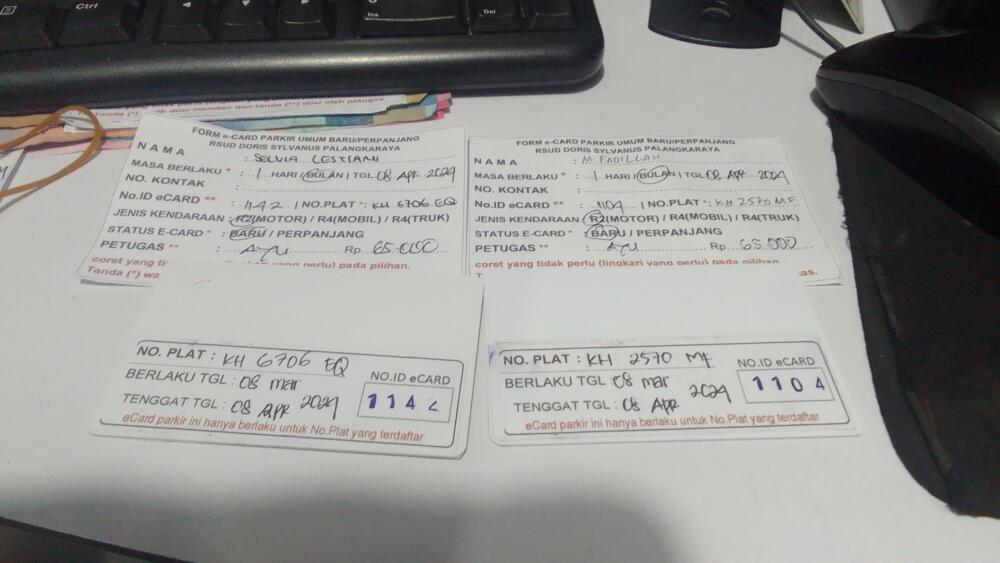 Ctrl
Ins
Del
Tanda (*) diisi oleh member dan tanda (**) diisi oleh petugas
FORM e-CARD PARKIR UMUM BARU/PERPANJANG
RSUD DORIS SYLVANUS PALANGKARAYA
NAMA : SELVIA LESTIANI
MASA BERLAKU * : 1 HARI / BULAN / TGL 08 APR 2024
NO. KONTAK :
No.ID eCARD ** : 1142 | NO.PLAT * : KH 6706 EQ
JENIS KENDARAAN : R2(MOTOR) / R4(MOBIL) / R4(TRUK)
STATUS E-CARD * : BARU / PERPANJANG
PETUGAS ** : AYU Rp 65.000
coret yang ti perlu (lingkari yang perlu) pada pilihan.
Tanda (*) wa
FORM e-CARD PARKIR UMUM BARU/PERPANJANG
RSUD DORIS SYLVANUS PALANGKARAYA
NAMA : M. FADILLAH
MASA BERLAKU * : 1 HARI / BULAN / TGL 08 APR 2024
NO. KONTAK :
No.ID eCARD ** : 1104 | NO.PLAT * : KH 2570 MF
JENIS KENDARAAN : R2(MOTOR) / R4(MOBIL) / R4(TRUK)
STATUS E-CARD * : BARU / PERPANJANG
PETUGAS ** : AYU Rp 65.000
coret yang tidak perlu (lingkari yang perlu) pada pilihan
T as.
NO. PLAT : KH 6706 EQ
BERLAKU TGL : 08 mar
TENGGAT TGL : 08 apr 2024
NO.ID eCARD
1142
eCard parkir ini hanya berlaku untuk No.Plat yang terdaftar
NO. PLAT : KH 2570 MF
BERLAKU TGL : 08 mar
TENGGAT TGL : 08 APR 2024
NO.ID eCARD
1104
eCard parkir ini hanya berlaku untuk No.Plat yang terdaftar